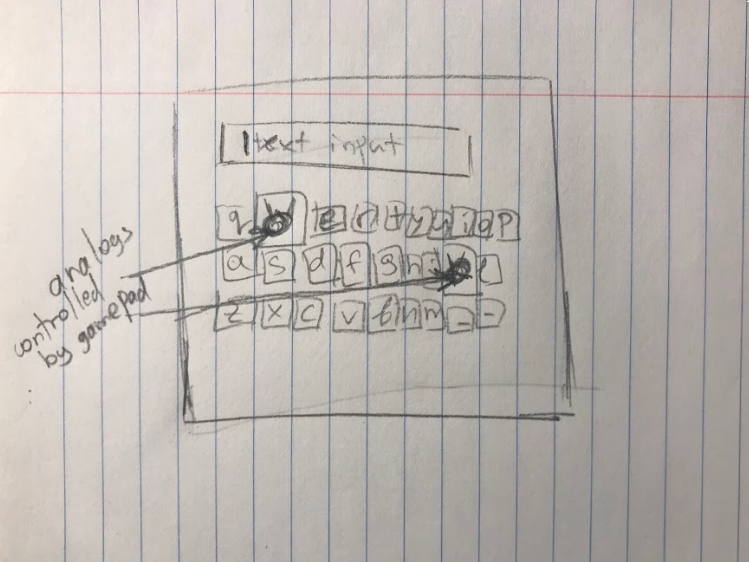 text input
q w e r t y u i o p
a s d f g h j k l
z x c v b n m _ -
analogs
controlled
by gamepad